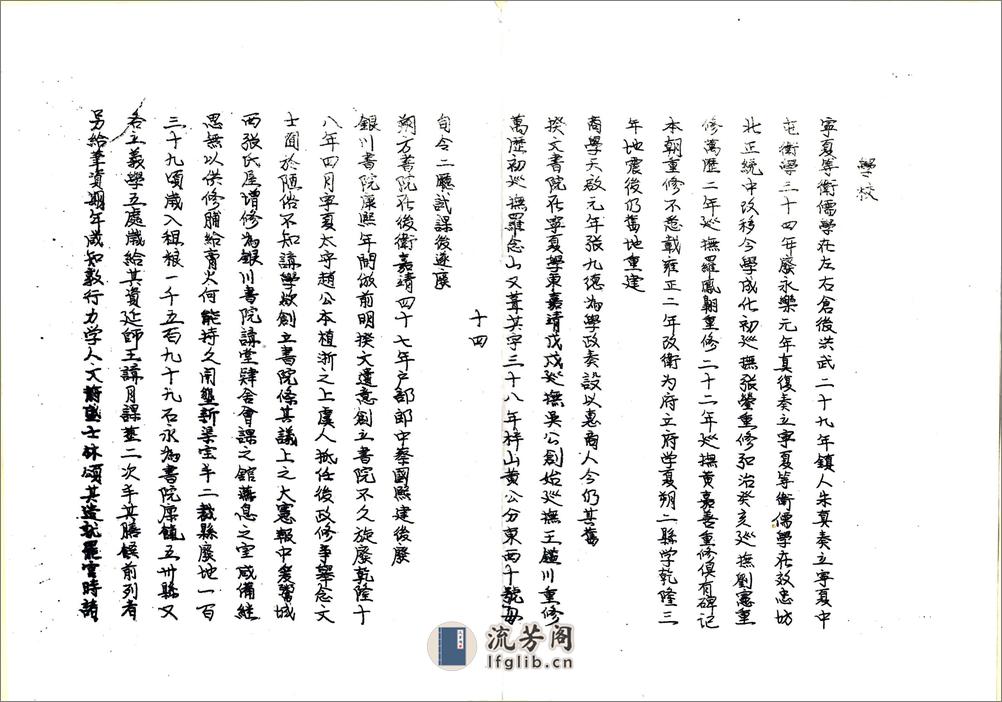 學校
寧夏等衛儒學在左右倉後洪武二十九年鎮人朱真奏立寧夏中
屯衛學三十四年廢永樂元年真復奏立寧夏等衛儒學在效忠坊
北正統中改移今學成化初巡撫張鎣重修弘治癸亥巡撫劉憲重
修萬歷二年巡撫羅鳳翱重修二十二年巡撫黃嘉善重修俱有碑記
本朝重修不悉載雍正二年改衛为府立府学夏朔二縣学乾隆三
年地震後仍舊地重建
商學天啟元年張九德为學政奏設以惠商人今仍其舊
揆文書院在寧夏學東嘉靖戊戌巡撫吳公創始巡撫王鑑川重修
萬歷初巡撫羅念山又葺其字三十八年梓山黃公分東西十號每
十四
旬令二廳試課後遂廢
朔方書院在後衛嘉靖四十七年户部郎中蔡國熙建後廢
銀川書院康熙年間倣前明揆文遺意創立書院不久旋廢乾隆十
八年四月寧夏太守趙公本植浙之上虞人抵任後政修事舉念文
士囿於陋俗不知講學欲創立書院條其議上之大憲報中爰買城
西張氏屋增修为銀川書院講堂肄舍會課之館藏息之室咸備继
思無以供修脯給膏火何能持久用墾新渠宝丰二裁縣廢地一百
三十九頃歲入租粮一千五百九十九石永为書院廩餼五卅縣又
各立義學五處歲給其資延師主講月課基二次丰其膳餼前列者
另給筆資期年咸知敦行力学人文蔚起士林頌其造就罷官時諸
流芳阁
lfglib.cn